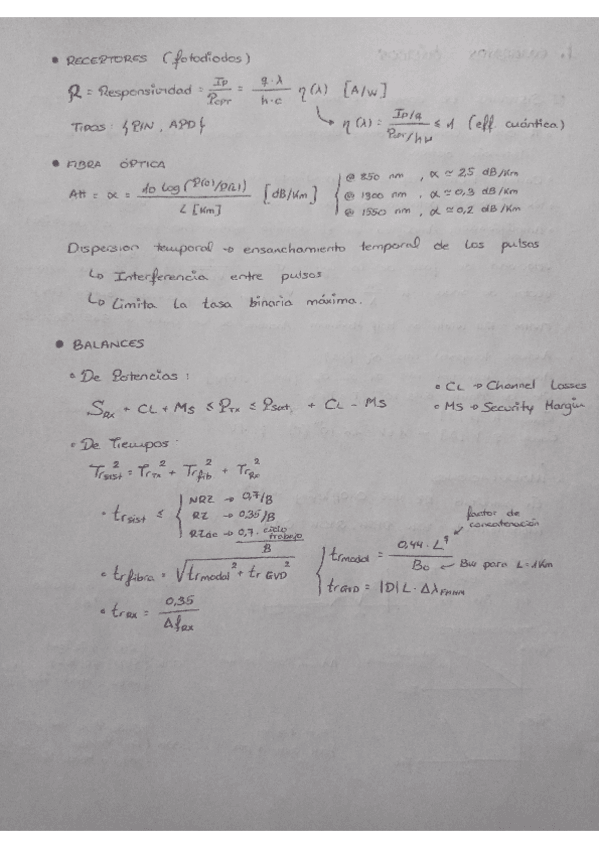 • RECEPTORES (fotodiodos)
R = Responsividad = Ip/Popt = q·λ/h·c η(λ) [A/W]
η(λ) = Ip/q / Popt/hν ≤ 1 (eff cuántica)
Tipos: {PIN, APD}
• FIBRA ÓPTICA
Att = α = 10 log(P(0)/P(L)) / L [Km] [dB/Km]
@ 850 nm, α ≃ 2,5 dB/Km
@ 1300 nm, α ≃ 0,3 dB/Km
@ 1550 nm, α ≃ 0,2 dB/Km
Dispersion temporal → ensanchamiento temporal de los pulsos
↳ Interferencia entre pulsos
↳ Limita la tasa binaria máxima.
• BALANCES
• De Potencias:
S_RX + CL + MS ≤ P_TX ≤ P_sat, + CL - MS
• CL → Channel Losses
• MS → Security Margin
• De Tiempos:
Tr_sist² = Tr_TX² + Tr_fib² + Tr_RX²
• tr_sist ≤ { NRZ → 0,7/B
RZ → 0,35/B
RZdc → 0,7 · ciclo trabajo / B
• tr_fibra = √(tr_modal² + tr_GVD²)
{ tr_modal = 0,44 · L^q / B0
factor de concatenación
BW para L=1Km
tr_GVD = |D| L · Δλ_FWHM
• tr_RX = 0,35 / Δf_RX